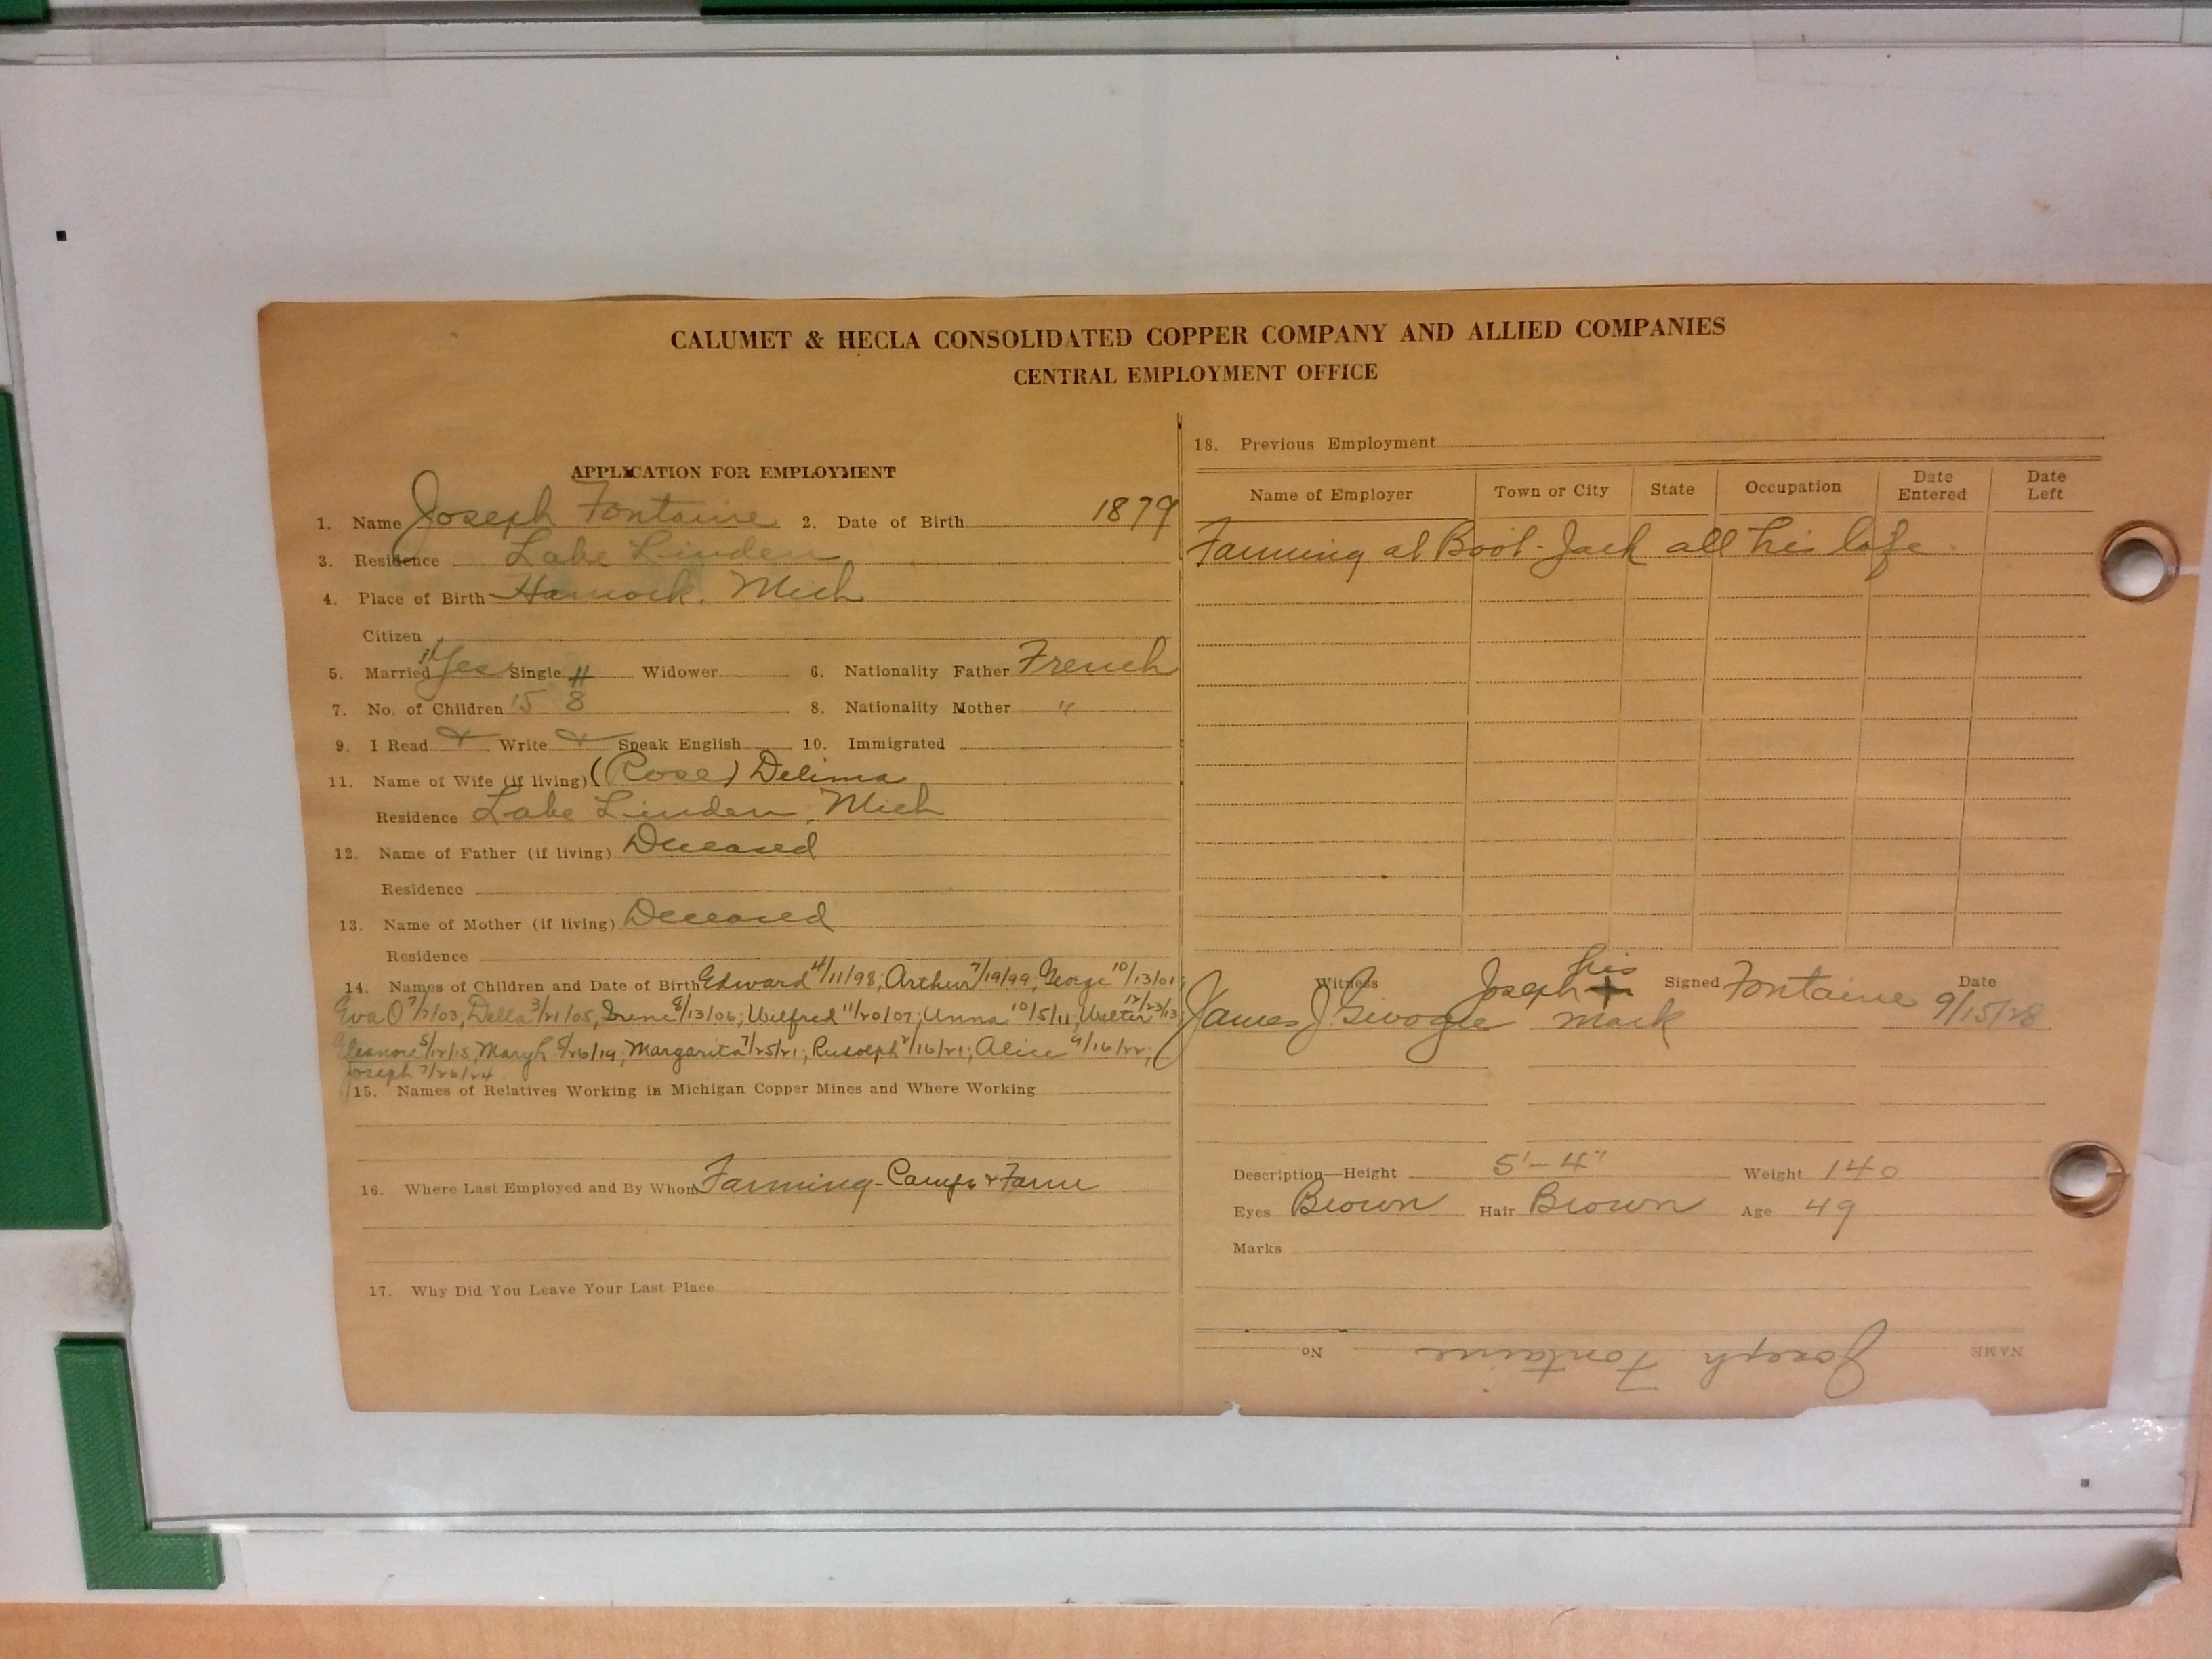 CALUMET & HECLA CONSOLIDATED COPPER COMPANY AND ALLIED COMPANIES
CENTRAL EMPLOYMENT OFFICE
APPLICATION FOR EMPLOYMENT
1. Name Joseph Fontaine 2. Date of Birth 1879
3. Residence Lake Linden
4. Place of Birth Hancock, Mich
Citizen
5. Married Yes Single Widower 6. Nationality Father French
7. No. of Children 15 8 8. Nationality Mother "
9. I Read Write Speak English 10. Immigrated
11. Name of Wife (if living) (Rose) Delima
Residence Lake Linden, Mich
12. Name of Father (if living) Deceased
Residence
13. Name of Mother (if living) Deceased
Residence
14. Names of Children and Date of Birth Edward 4/11/98, Arthur 7/19/99, George 10/13/01,
Eva O 7/7/03, Della 3/21/05, Irene 8/13/06; Wilfred 11/20/07; Anna 10/5/11, Walter 12/23/13
Eleanore 5/12/15, Mary L 5/26/19, Margarita 7/25/21, Rudolph 2/16/21; Alice 9/16/22,
Joseph 7/26/24
15. Names of Relatives Working in Michigan Copper Mines and Where Working
16. Where Last Employed and By Whom Farming - Camps & Farm
17. Why Did You Leave Your Last Place
18. Previous Employment
Name of Employer Town or City State Occupation Date Entered Date Left
Farming at Boot-Jack all his life
his
Witness Joseph + Signed Fontaine Date
James J. mark 9/15/28
Description—Height 5'-4" Weight 140
Eyes Brown Hair Brown Age 49
Marks
NAME Joseph Fontaine No